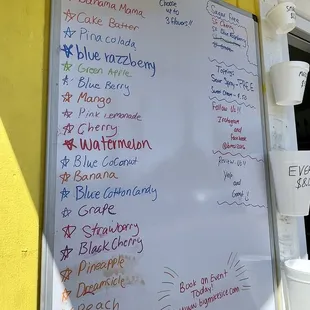 Banana Mama
Cake Batter
Pina colada
blue razzberry
Green Apple
Blue Berry
Mango
Pink Lemonade
Cherry
Watermelon
Blue Coconut
Banana
Blue Cotton Candy
Grape
Strawberry
Black Cherry
Pineapple
Dreamsicle
Peach
Choose
up to
3 flavors!!
Sugar Free
Cherry
Blue Raspberry
Toppings
Sour Spray - FREE
Follow Us!!
Instagram
and
Facebook
Review Us!!
Yelp
and
Google
Book an Event
Today!